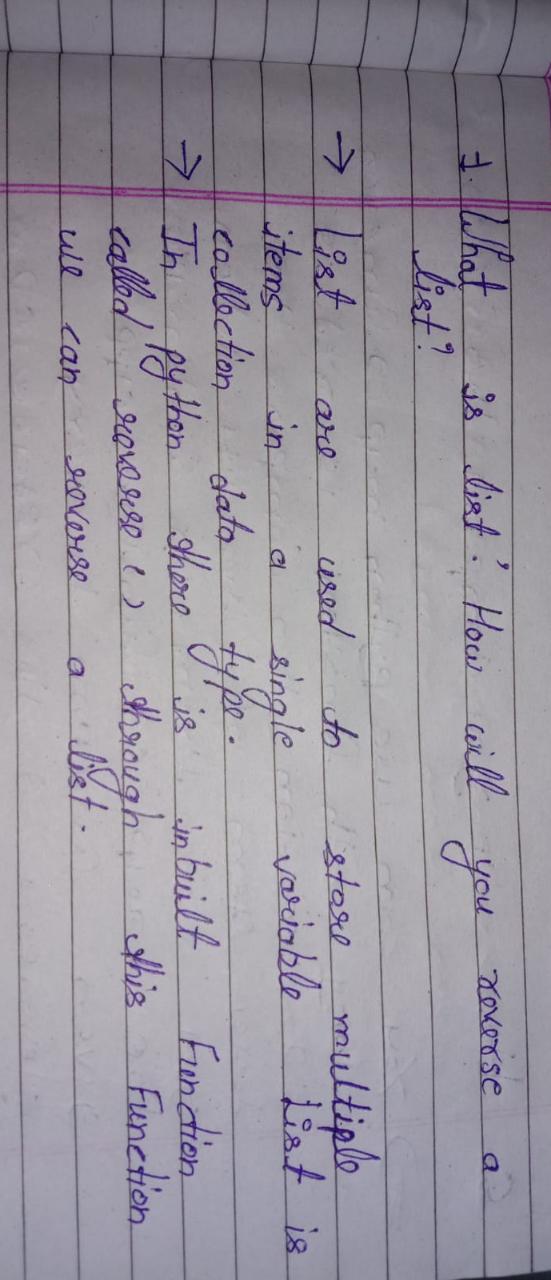 1. What is list? How will you reverse a
list?
→ List are used to store multiple
items in a single variable List is
collection data type.
→ In python there is inbuilt Function
called reverse () through this Function
we can reverse a list.